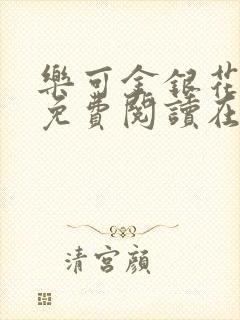 樂可金銀花
免費閱讀在
清宮顏